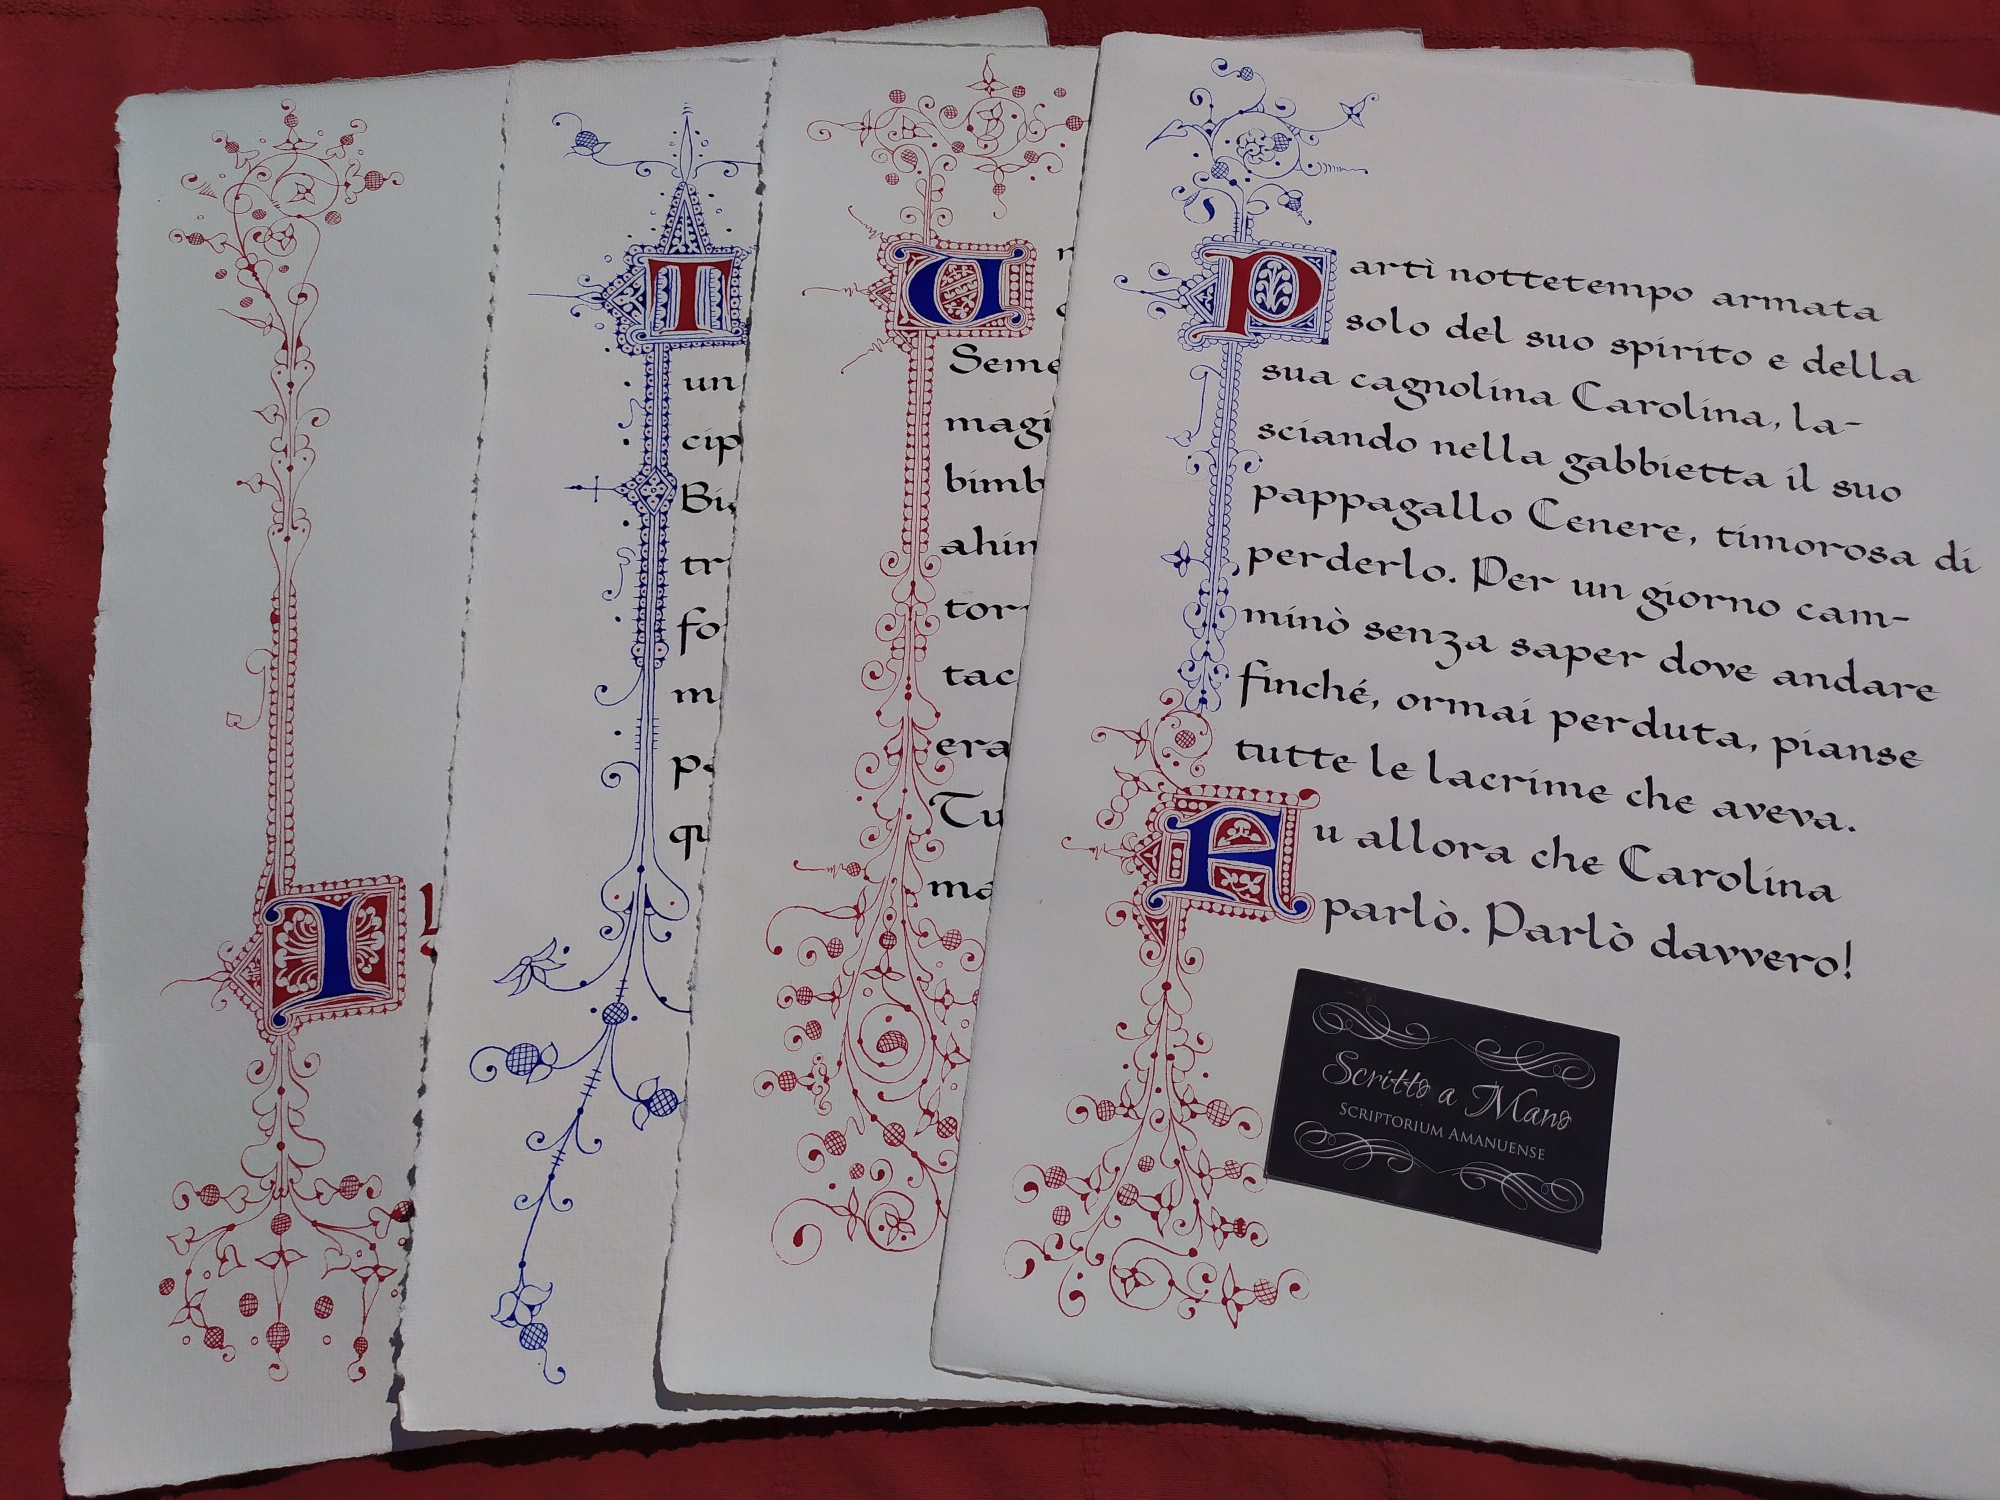 I
I
un
cip
Bi
tr
fo
m
p
qu
U
Seme
magi
bimb
ahim
tor
tac
era
Tu
ma
Partì nottetempo armata
solo del suo spirito e della
sua cagnolina Carolina, la-
sciando nella gabbietta il suo
pappagallo Cenere, timorosa di
perderlo. Per un giorno cam-
minò senza saper dove andare
finché, ormai perduta, pianse
tutte le lacrime che aveva.
Fu allora che Carolina
parlò. Parlò davvero!
Scritto a Mano
SCRIPTORIUM AMANUENSE